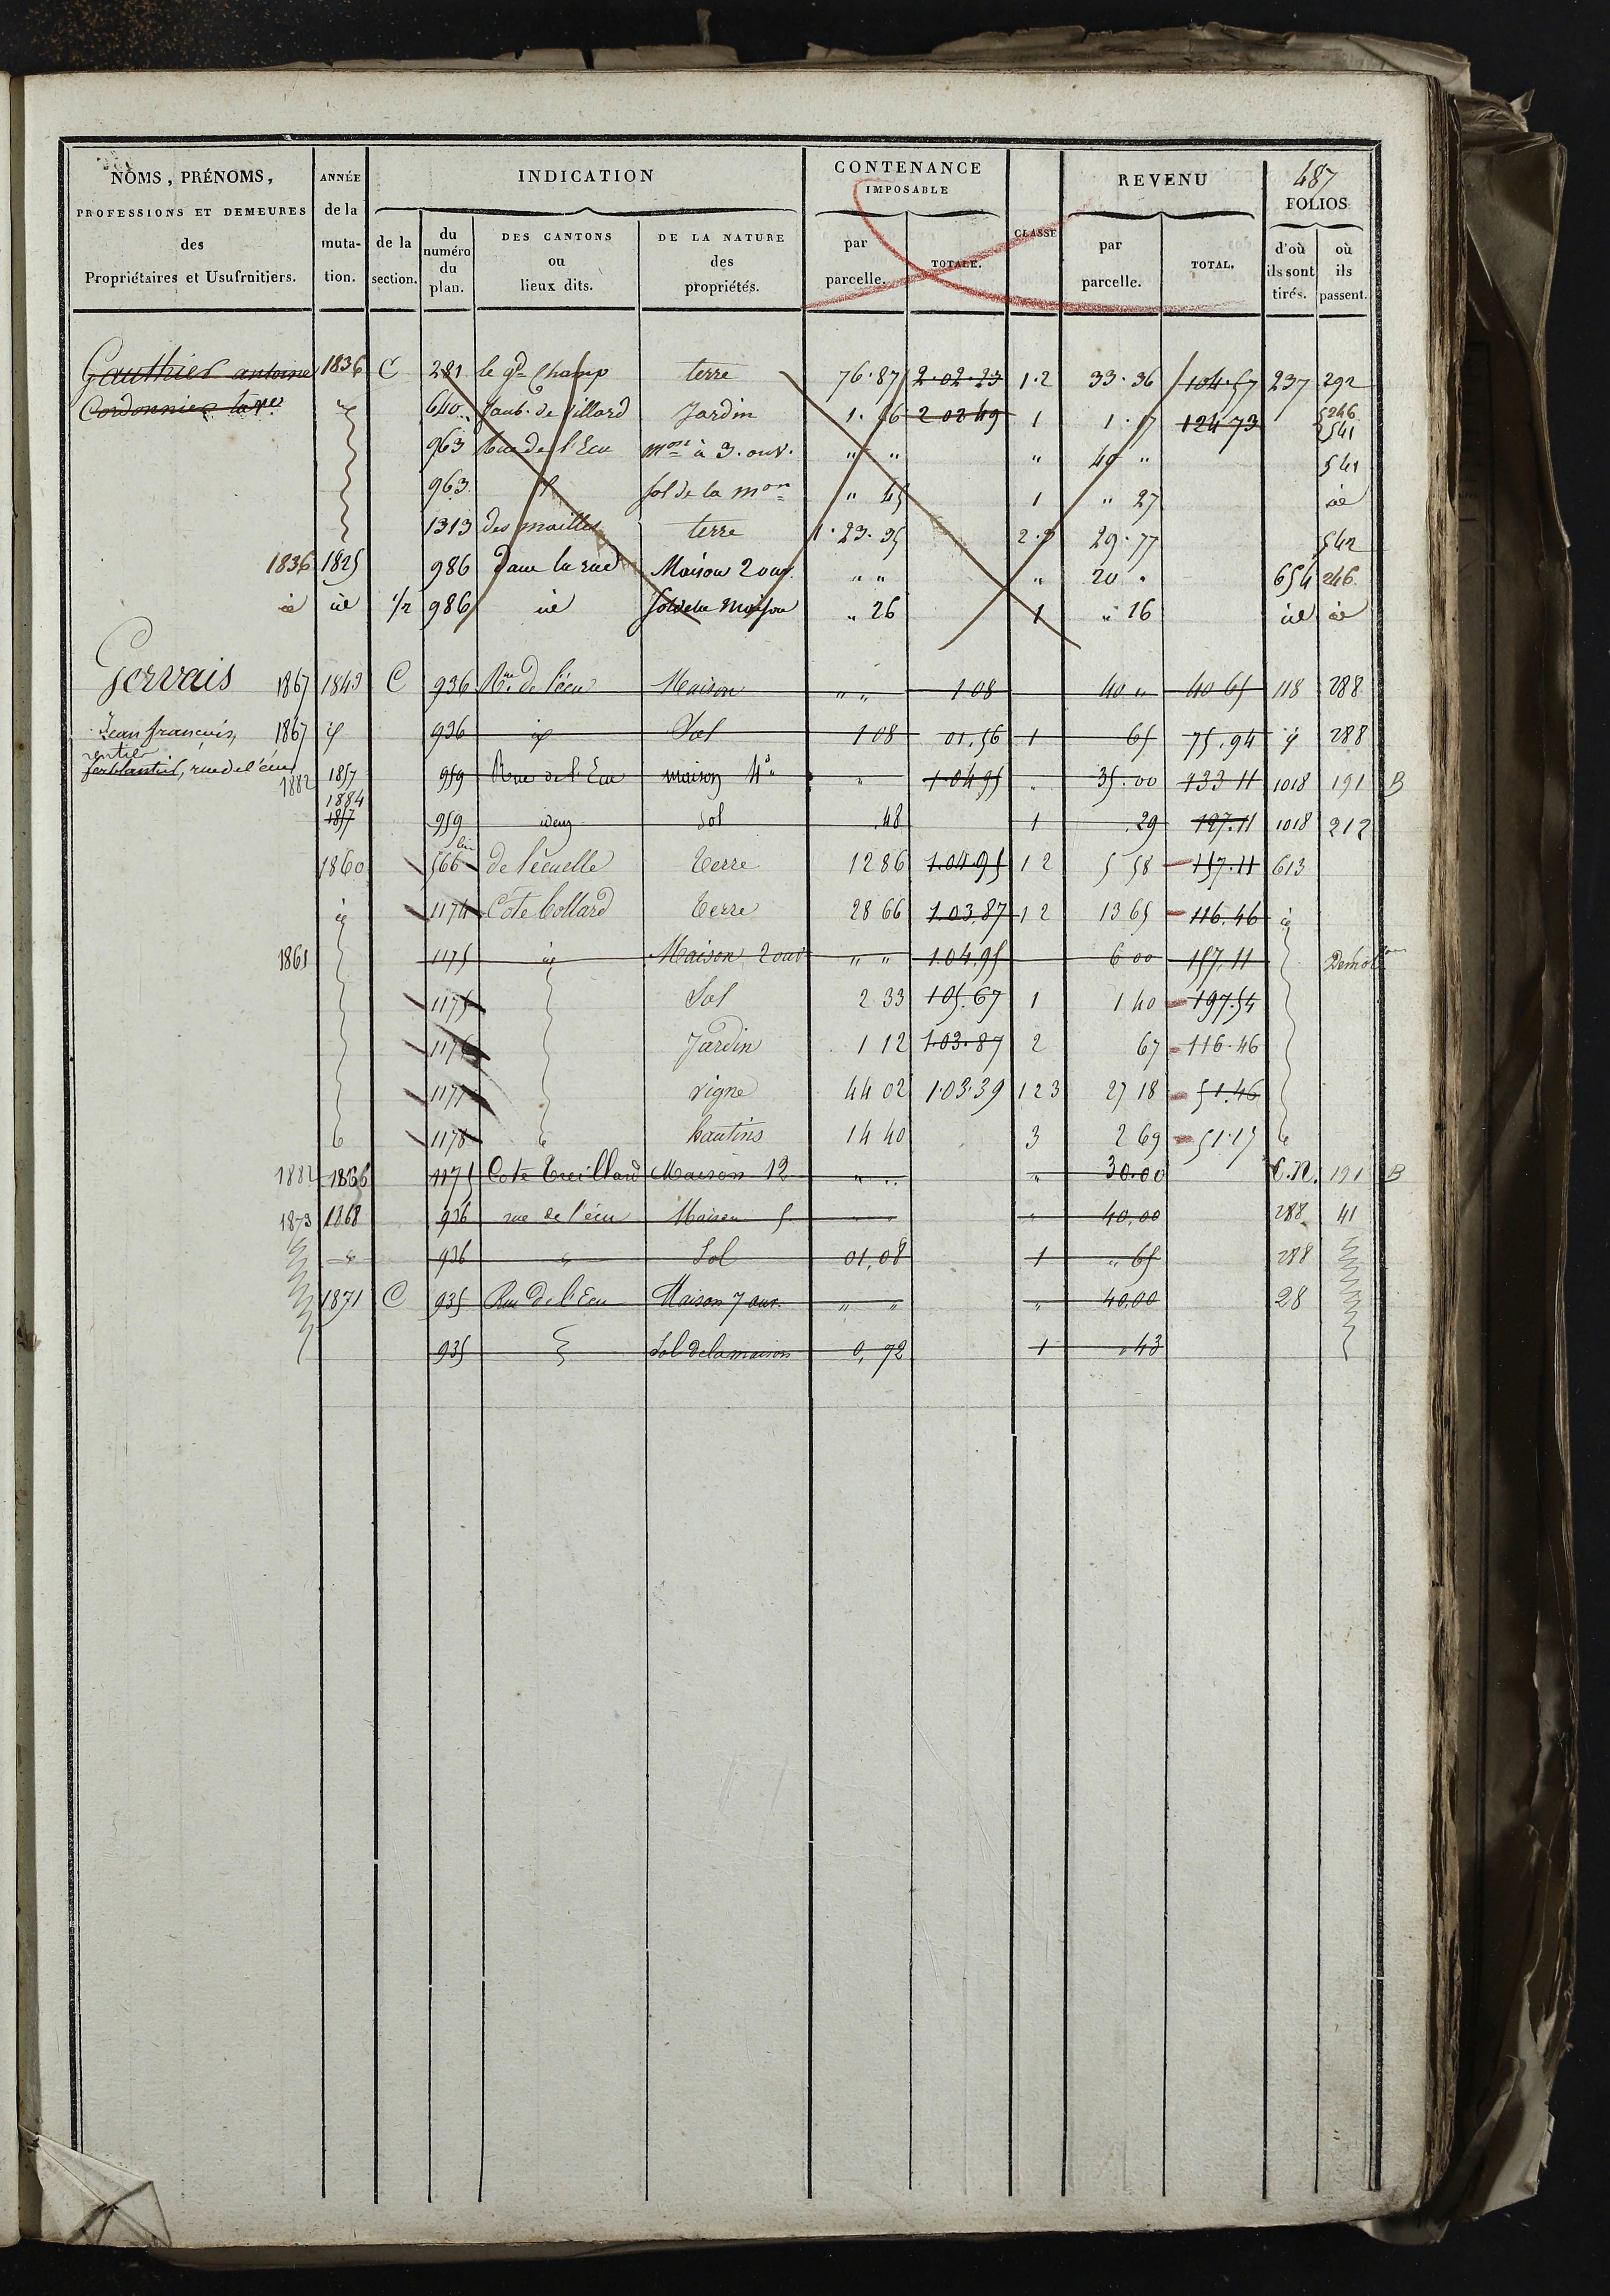 NOMS, PRÉNOMS, ANNÉE INDICATION CONTENANCE IMPOSABLE CLASSE REVENU 487 FOLIOS
PROFESSIONS ET DEMEURES des Propriétaires et Usufruitiers. de la mutation. de la section. du numéro du plan. DES CANTONS ou lieux dits. DE LA NATURE des propriétés. par parcelle. TOTALE. par parcelle. TOTAL. d'où ils sont tirés. où ils passent.
Gauthier antoine 1836 C 281 le gd Champ terre 76.87 2.02.23 1.2 33.36 104.57 237 292
Cordonnier la ve id 640 faub. de villard Jardin 1.26 2 02 49 1 1.17 124 73 246 541
963 Rue de l'Ecu mon à 3. ouv. " " " 40 " 541
963 id sol de la mon " 45 1 " 27 id
1313 des mailles terre 1.23.35 2.3 29.77 542
1836 1825 986 dans la rue Maison 2 ouv. " " " 20 " 654 246
id id 1/2 986 id sol de la Maison " 26 1 " 16 id id
Gervais 1867 1849 C 936 Rue de l'écu Maison " " 1 08 40 " 40 65 118 288
Jean françois, 1867 id 936 id Sol 1 08 01.56 1 65 75.94 id 288
rentier
ferblantier, rue de l'écu
1882 1857 959 Rue de l'Ecu maison 4e " 1.04.95 " 35.00 133 11 1018 191 B
1884
1857 959 idem sol .48 1 .29 127.11 1018 212
1860 566 bis de l'écuelle Terre 12 86 1.04.95 1 2 5 58 157.11 613
id 1174 Côte Collard Terre 28 66 1.03.87 1 2 13 65 116.46 id
1861 1175 id Maison 2 ouv " " 1.04.95 6 00 157.11 Démolon
1175 Sol 2 33 105.67 1 1 40 197.54
1176 Jardin 1 12 1.03.87 2 67 116.46
1177 vigne 44 02 1.03.39 1 2 3 27 18 51.46
1178 hautins 14 40 3 2 69 51.17
1882 1866 1175 Cote Treillard Maison 12 " " " 30.00 C.N. 191 B
1873 1868 936 rue de l'écu Maison 5 " " " 40,00 288 41
936 Sol 01,08 1 " 65 288
1871 C 935 Rue de l'Ecu Maison 7 ouv. " " " 40,00 28
935 Sol de la maison 0,72 1 " 43